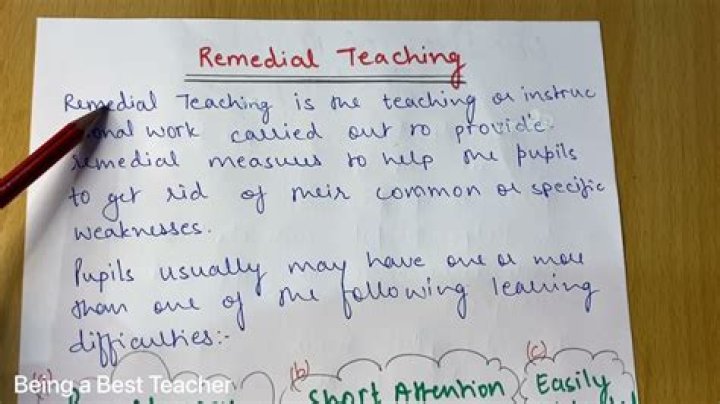 Remedial Teaching
Remedial Teaching is the teaching or instruc
ional work carried out to provide
remedial measures to help the pupils
to get rid of their common or specific
weaknesses.
Pupils usually may have one or more
than one of the following learning
difficulties:-
(a) (b) (c)
Short Attention Easily
Being a Best Teacher